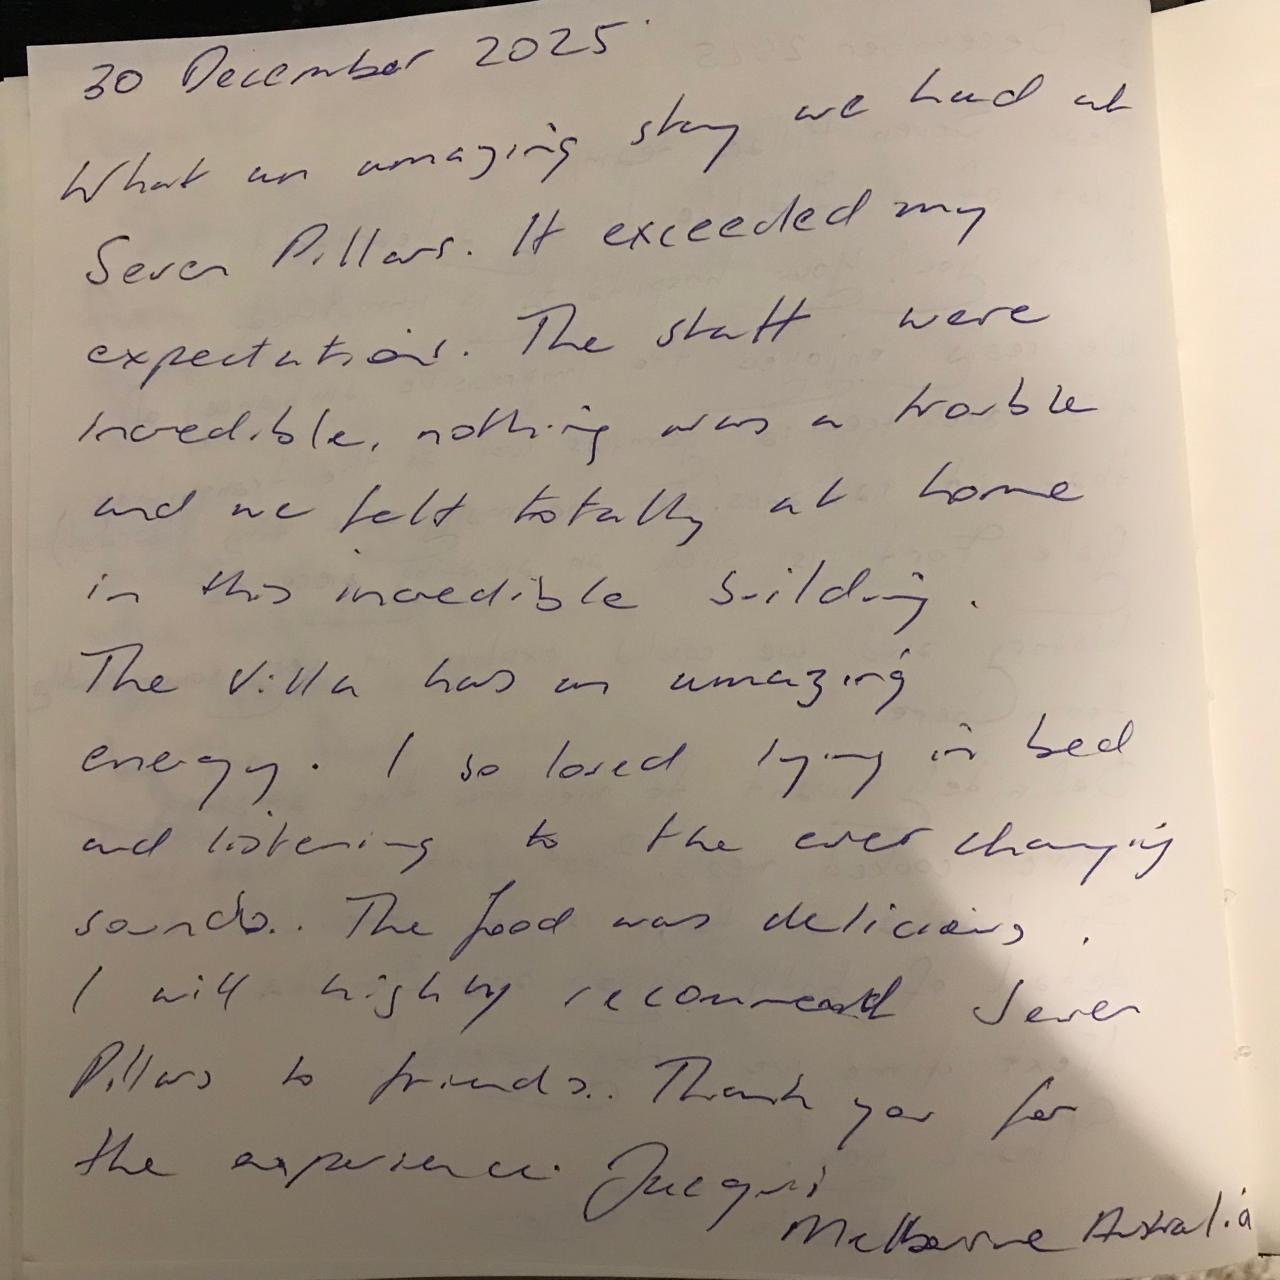 30 December 2025
What an amazing stay we had at
Seven Pillars. It exceeded my
expectations. The staff were
incredible, nothing was a trouble
and we felt totally at home
in this incredible building.
The Villa has an amazing
energy. I so loved lying in bed
and listening to the ever changing
sounds.. The food was delicious.
I will highly recommend Seven
Pillars to friends.. Thank you for
the experience. Jacqui
Melbourne Australia